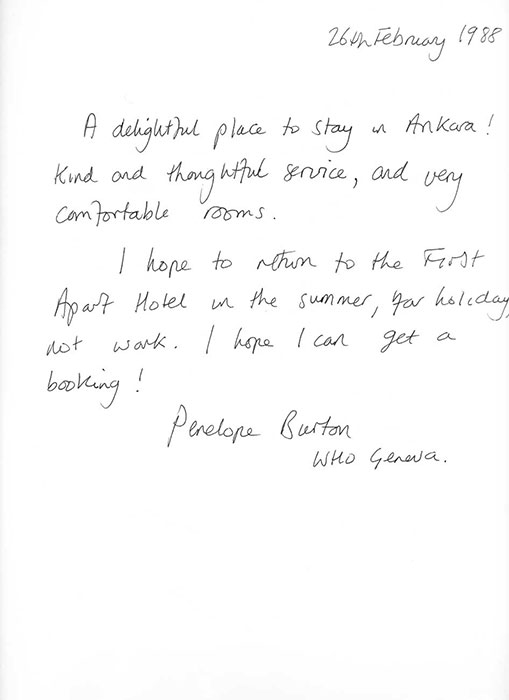 26th February 1988
A delightful place to stay in Ankara!
Kind and thoughtful service, and very
comfortable rooms.
I hope to return to the First
Apart Hotel in the summer, for holiday,
not work. I hope I can get a
booking!
Penelope Burton
WHO Geneva.